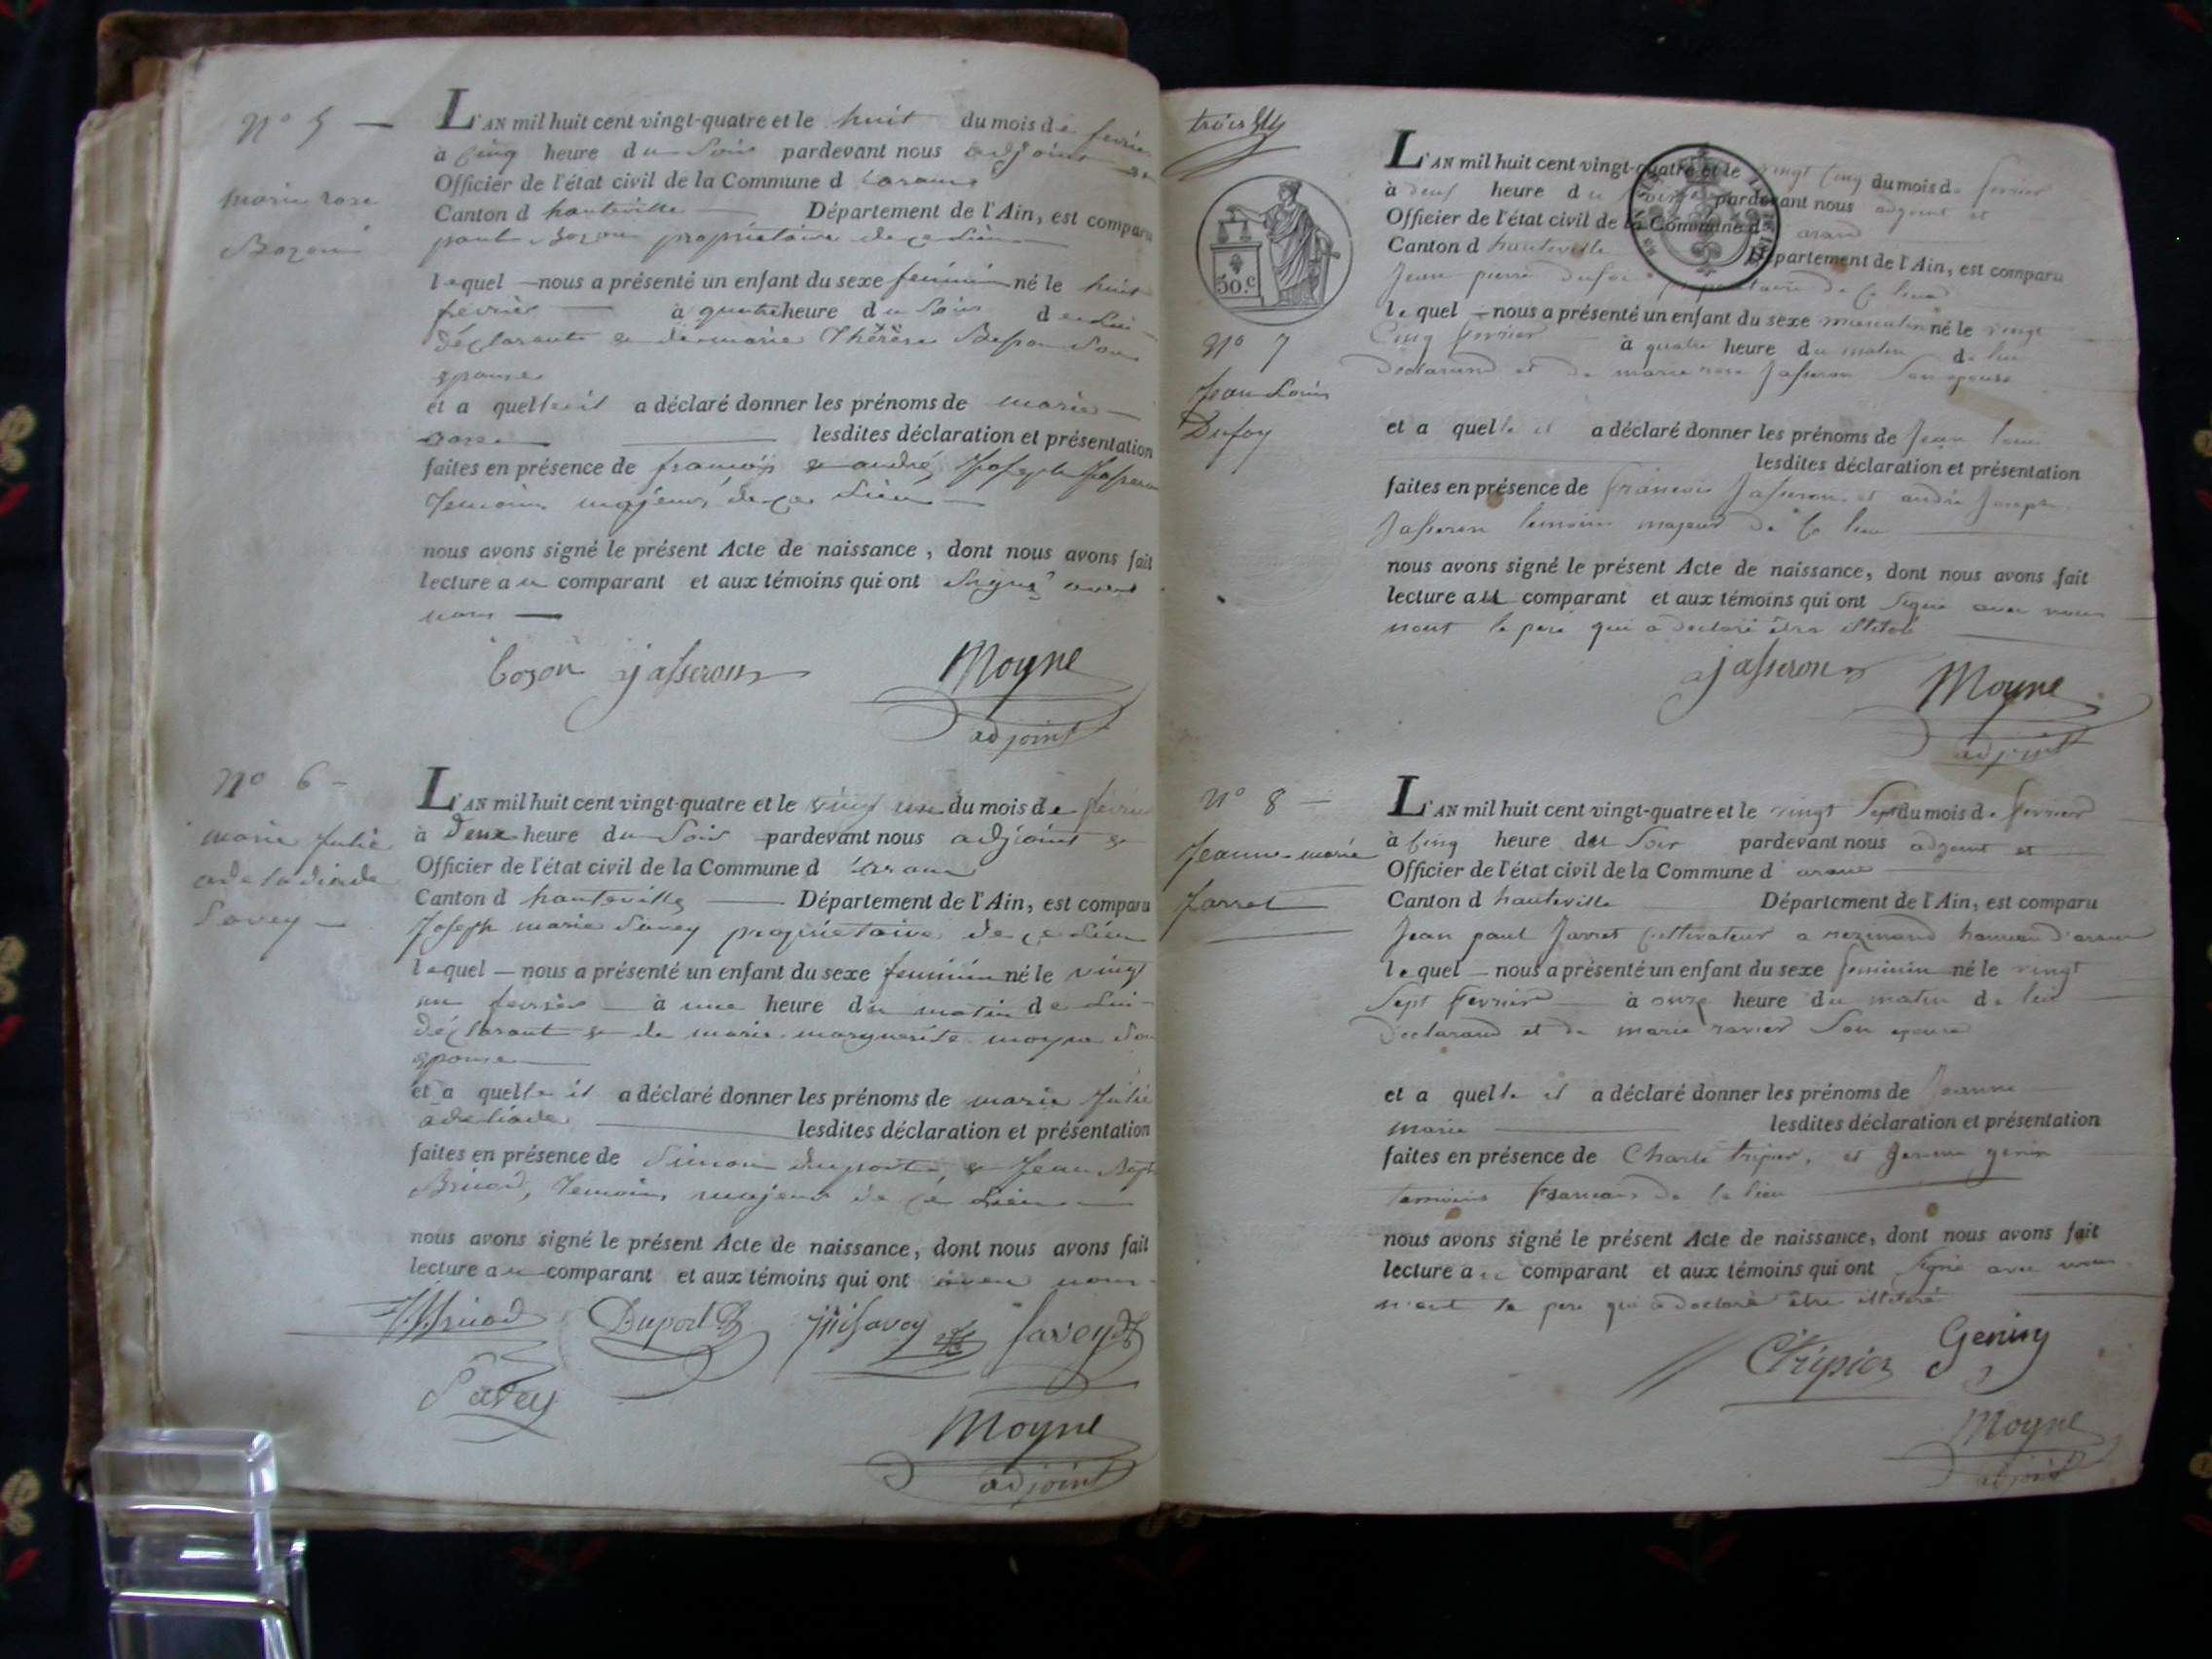 N° 5 —
marie rose
Bozon
L'AN mil huit cent vingt-quatre et le huit du mois de fevrier
à cinq heure du Soir pardevant nous adjoint et
Officier de l'état civil de la Commune d'arano
Canton d hauteville — Département de l'Ain, est comparu
paul Bozon propriétaire de ce Lieu
lequel — nous a présenté un enfant du sexe feminin né le huit
fevrier — à quatre heure du Soir de Lui
déclarant et de marie Thérèse Son
epouse
et a quelle il a déclaré donner les prénoms de marie
rose — lesdites déclaration et présentation
faites en présence de françois et andré Joseph Jasseron
temoins majeurs de ce Lieu —
nous avons signé le présent Acte de naissance, dont nous avons fait
lecture au comparant et aux témoins qui ont Signé avec
nous —
bozon jasseron Moyne
adjoint
N° 6 —
marie Julie
adeladiade
Savey —
L'AN mil huit cent vingt-quatre et le vingt un du mois de fevrier
à Deux heure du Soir pardevant nous adjoint et
Officier de l'état civil de la Commune d'arano
Canton d hauteville — Département de l'Ain, est comparu
Joseph marie Savey propriétaire de ce Lieu
lequel — nous a présenté un enfant du sexe feminin né le vingt
un fevrier — à une heure du matin de Lui
déclarant et de marie marguerite moyne Son
epouse —
et a quelle il a déclaré donner les prénoms de marie Julie
adeliade — lesdites déclaration et présentation
faites en présence de Simon Duport et Jean Bapt
Bruod, temoins majeurs de ce Lieu —
nous avons signé le présent Acte de naissance, dont nous avons fait
lecture au comparant et aux témoins qui ont avec nous
Duport Savey Savey
Savey
Moyne
adjoint
trois
50.c
N° 7
Jean Louis
Dufoy
L'AN mil huit cent vingt-quatre et le vingt cinq du mois de fevrier
à deux heure du soir pardevant nous adjoint et
Officier de l'état civil de la Commune d arano
Canton d hauteville Département de l'Ain, est comparu
Jean pierre dufoi propriétaire de ce lieu
le quel — nous a présenté un enfant du sexe masculin né le vingt
Cinq fevrier à quatre heure du matin de lui
declarand et de marie rose Jasseron Son epouse
et a quelle il a déclaré donner les prénoms de Jean louis
lesdites déclaration et présentation
faites en présence de francois Jasseron et andré Joseph
Jasseron temoins majeur de ce lieu —
nous avons signé le présent Acte de naissance, dont nous avons fait
lecture au comparant et aux témoins qui ont signé avec nous
nont le pere qui a declaré être illiteré —
jasseron Moyne
adjoint
N° 8 —
Jeanne marie
Jarret
L'AN mil huit cent vingt-quatre et le vingt Sept du mois de fevrier
à Cinq heure du Soir pardevant nous adjoint et
Officier de l'état civil de la Commune d' arano
Canton d hauteville Département de l'Ain, est comparu
Jean paul Jarret Cultivateur a rezinand hameau d'arano
le quel — nous a présenté un enfant du sexe feminin né le vingt
Sept fevrier — à onze heure du matin de lui
declarand et de marie ravier Son epouse
et a quelle il a déclaré donner les prénoms de Jeanne
marie — lesdites déclaration et présentation
faites en présence de Charle tripier, et genin
temoins francais de ce lieu —
nous avons signé le présent Acte de naissance, dont nous avons fait
lecture au comparant et aux témoins qui ont signé avec nous
n'ont le pere qui a declaré être illiteré
Ctripier Geniny
Moyne
adjoint